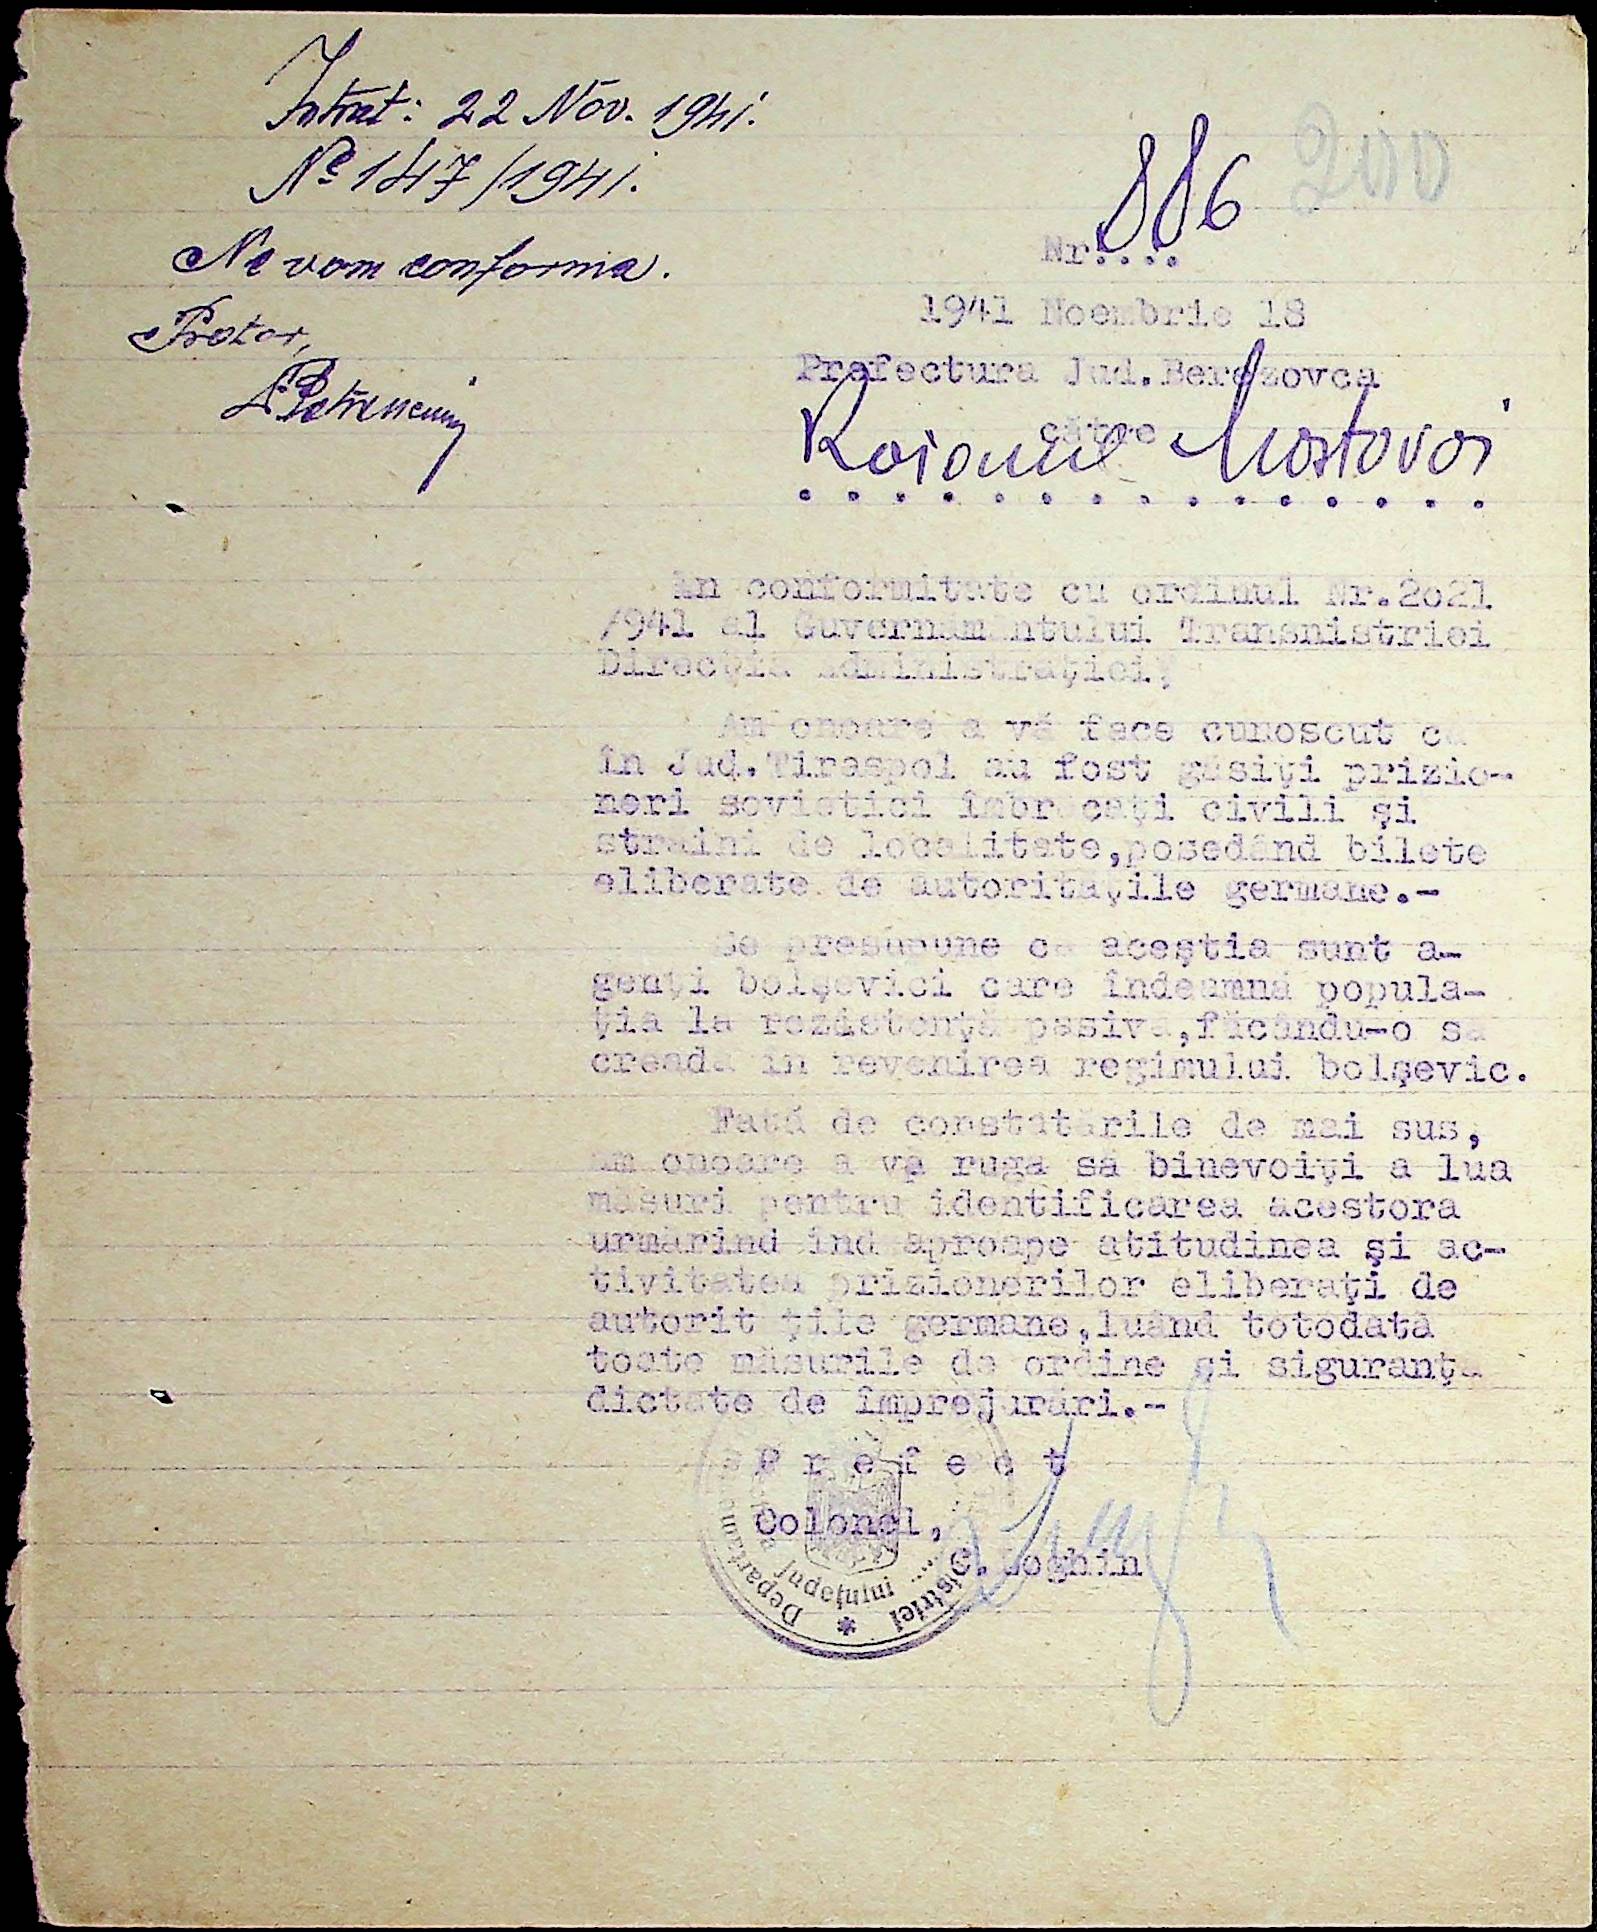 Intrat: 22 Nov. 1941.
Nº 147/1941.
Ne vom conforma.
Pretor,
200
886
Nr....
1941 Noembrie 18
Prefectura Jud.Berezovca
către
Raionul Mostovoi
În conformitate cu ordinul Nr.2o21
/941 al Guvernământului Transnistriei
Direcţia Administraţiei;
Am onoare a vă face cunoscut că
în Jud.Tiraspol au fost găsiţi prizio-
neri sovietici îmbrăcaţi civili şi
straini de localitate,posedând bilete
eliberate de autoritaţile germane.-
Se presupune că aceştia sunt a-
genţi bolşevici care îndeamnă popula-
ţia la rezistenţă pasivă,făcându-o să
creadă în revenirea regimului bolşevic.
Faţă de constatările de mai sus,
am onoare a vă ruga să binevoiţi a lua
măsuri pentru identificarea acestora
urmărind înd aproape atitudinea şi ac-
tivitatea prizionerilor eliberaţi de
autorit ţile germane,luând totodată
toate măsurile de ordine şi siguranţă
dictate de împrejurări.-
P r e f e c t
Colonel,
C.Loghin
Județului